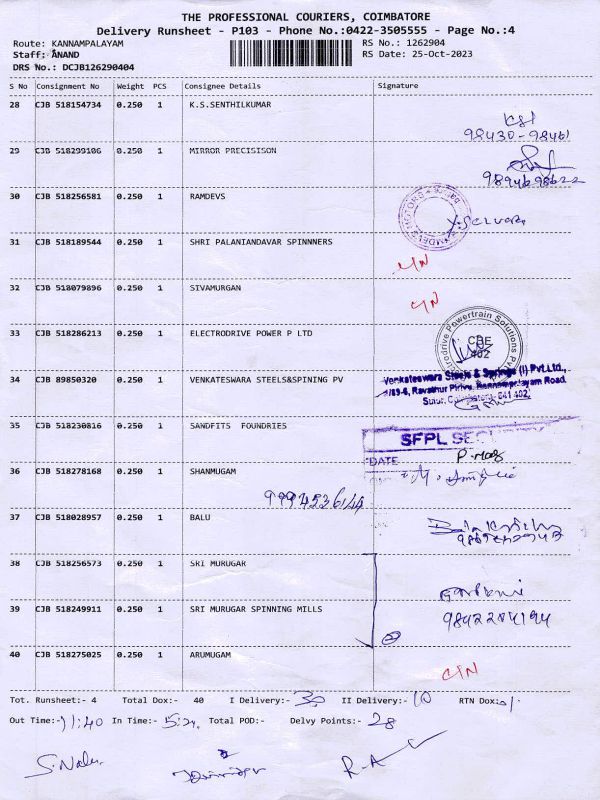 THE PROFESSIONAL COURIERS, COIMBATORE
Delivery Runsheet - P103 - Phone No.:0422-3505555 - Page No.:4
Route: KANNAMPALAYAM RS No.: 1262904
Staff: ANAND RS Date: 25-Oct-2023
DRS No.: DCJB126290404
S No Consignment No Weight PCS Consignee Details Signature
28 CJB 518154734 0.250 1 K.S.SENTHILKUMAR
98430-98461
29 CJB 518299106 0.250 1 MIRROR PRECISISON
9894698622
30 CJB 518256581 0.250 1 RAMDEVS
31 CJB 518189544 0.250 1 SHRI PALANIANDAVAR SPINNNERS
32 CJB 518079896 0.250 1 SIVAMURGAN
33 CJB 518286213 0.250 1 ELECTRODRIVE POWER P LTD
Powertrain Solutions
CBE
402
34 CJB 89850320 0.250 1 VENKATESWARA STEELS&SPINING PV
Venkateswara Steels & Springs (I) Pvt.Ltd.,
35 CJB 518230816 0.250 1 SANDFITS FOUNDRIES
SFPL
DATE
36 CJB 518278168 0.250 1 SHANMUGAM
37 CJB 518028957 0.250 1 BALU
38 CJB 518256573 0.250 1 SRI MURUGAR
39 CJB 518249911 0.250 1 SRI MURUGAR SPINNING MILLS
40 CJB 518275025 0.250 1 ARUMUGAM
Tot. Runsheet:- 4 Total Dox:- 40 I Delivery:- 30 II Delivery:- 10 RTN Dox:-
Out Time:- 11:40 In Time:- Total POD:- Delvy Points:- 28